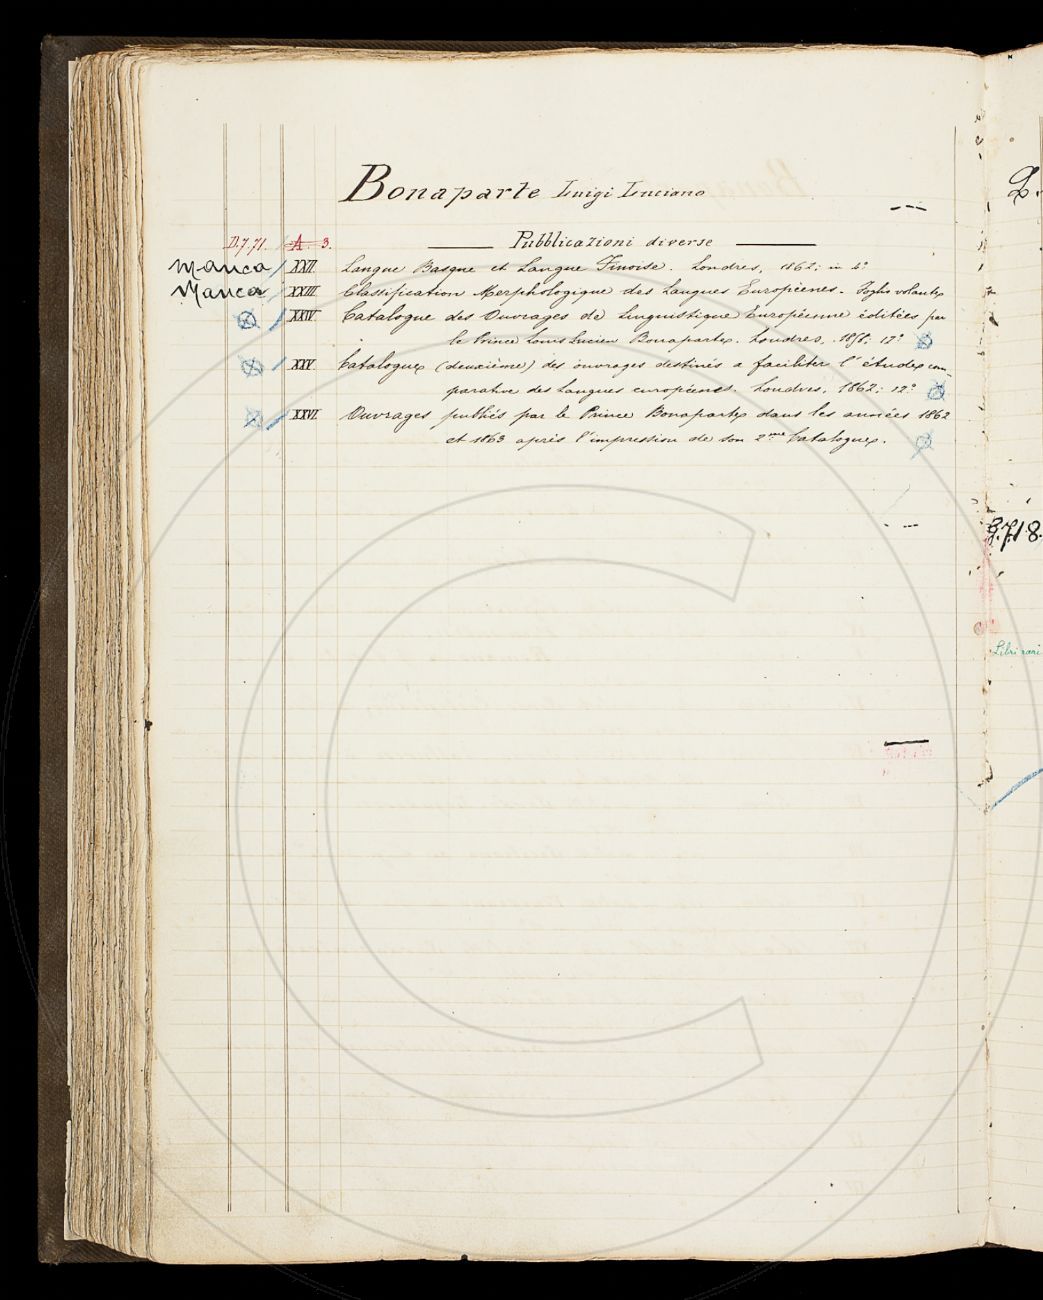 Bonaparte Luigi Luciano
D.7.71. A. 3. Pubblicazioni diverse
Manca XXII Langue Basque et Langue Finoise. Londres, 1862; in 4°
Manca XXIII Classification Morphologique des Langues Européennes. Foglio volante
XXIV Catalogue des Ouvrages de Linguistique Européenne éditées par
le Prince Louis Lucien Bonaparte. Londres, 1858; 12°
XXV Catalogue (deuxième) des ouvrages destinés a faciliter l'étude com
parative des Langues européennes. Londres, 1862; 12°
XXVI Ouvrages publiés par le Prince Bonaparte dans les années 1862
et 1863 après l'impression de son 2me Catalogue.
2.
G.7.18.
Libri rari